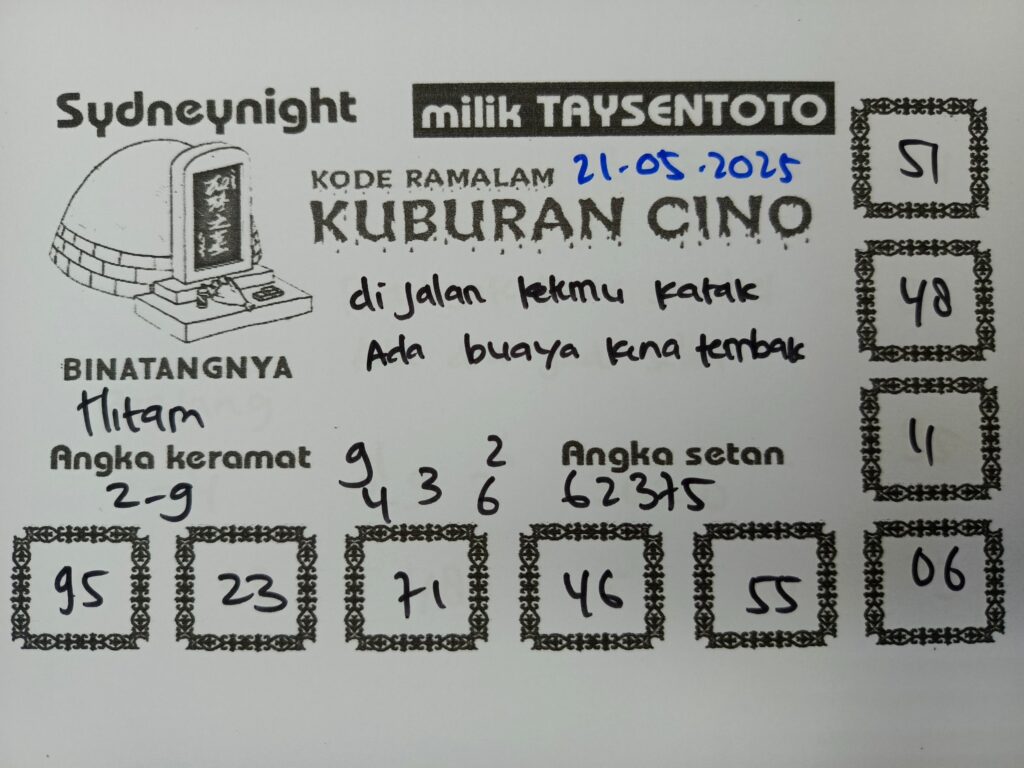 Sydneynight
milik TAYSENTOTO
KODE RAMALAM 21.05.2025
KUBURAN CINO
di jalan ketemu katak
Ada buaya kena tembak
BINATANGNYA
Hitam
Angka keramat
2-9
9 2
4 3 6
Angka setan
62375
51
48
11
95 23 71 46 55 06